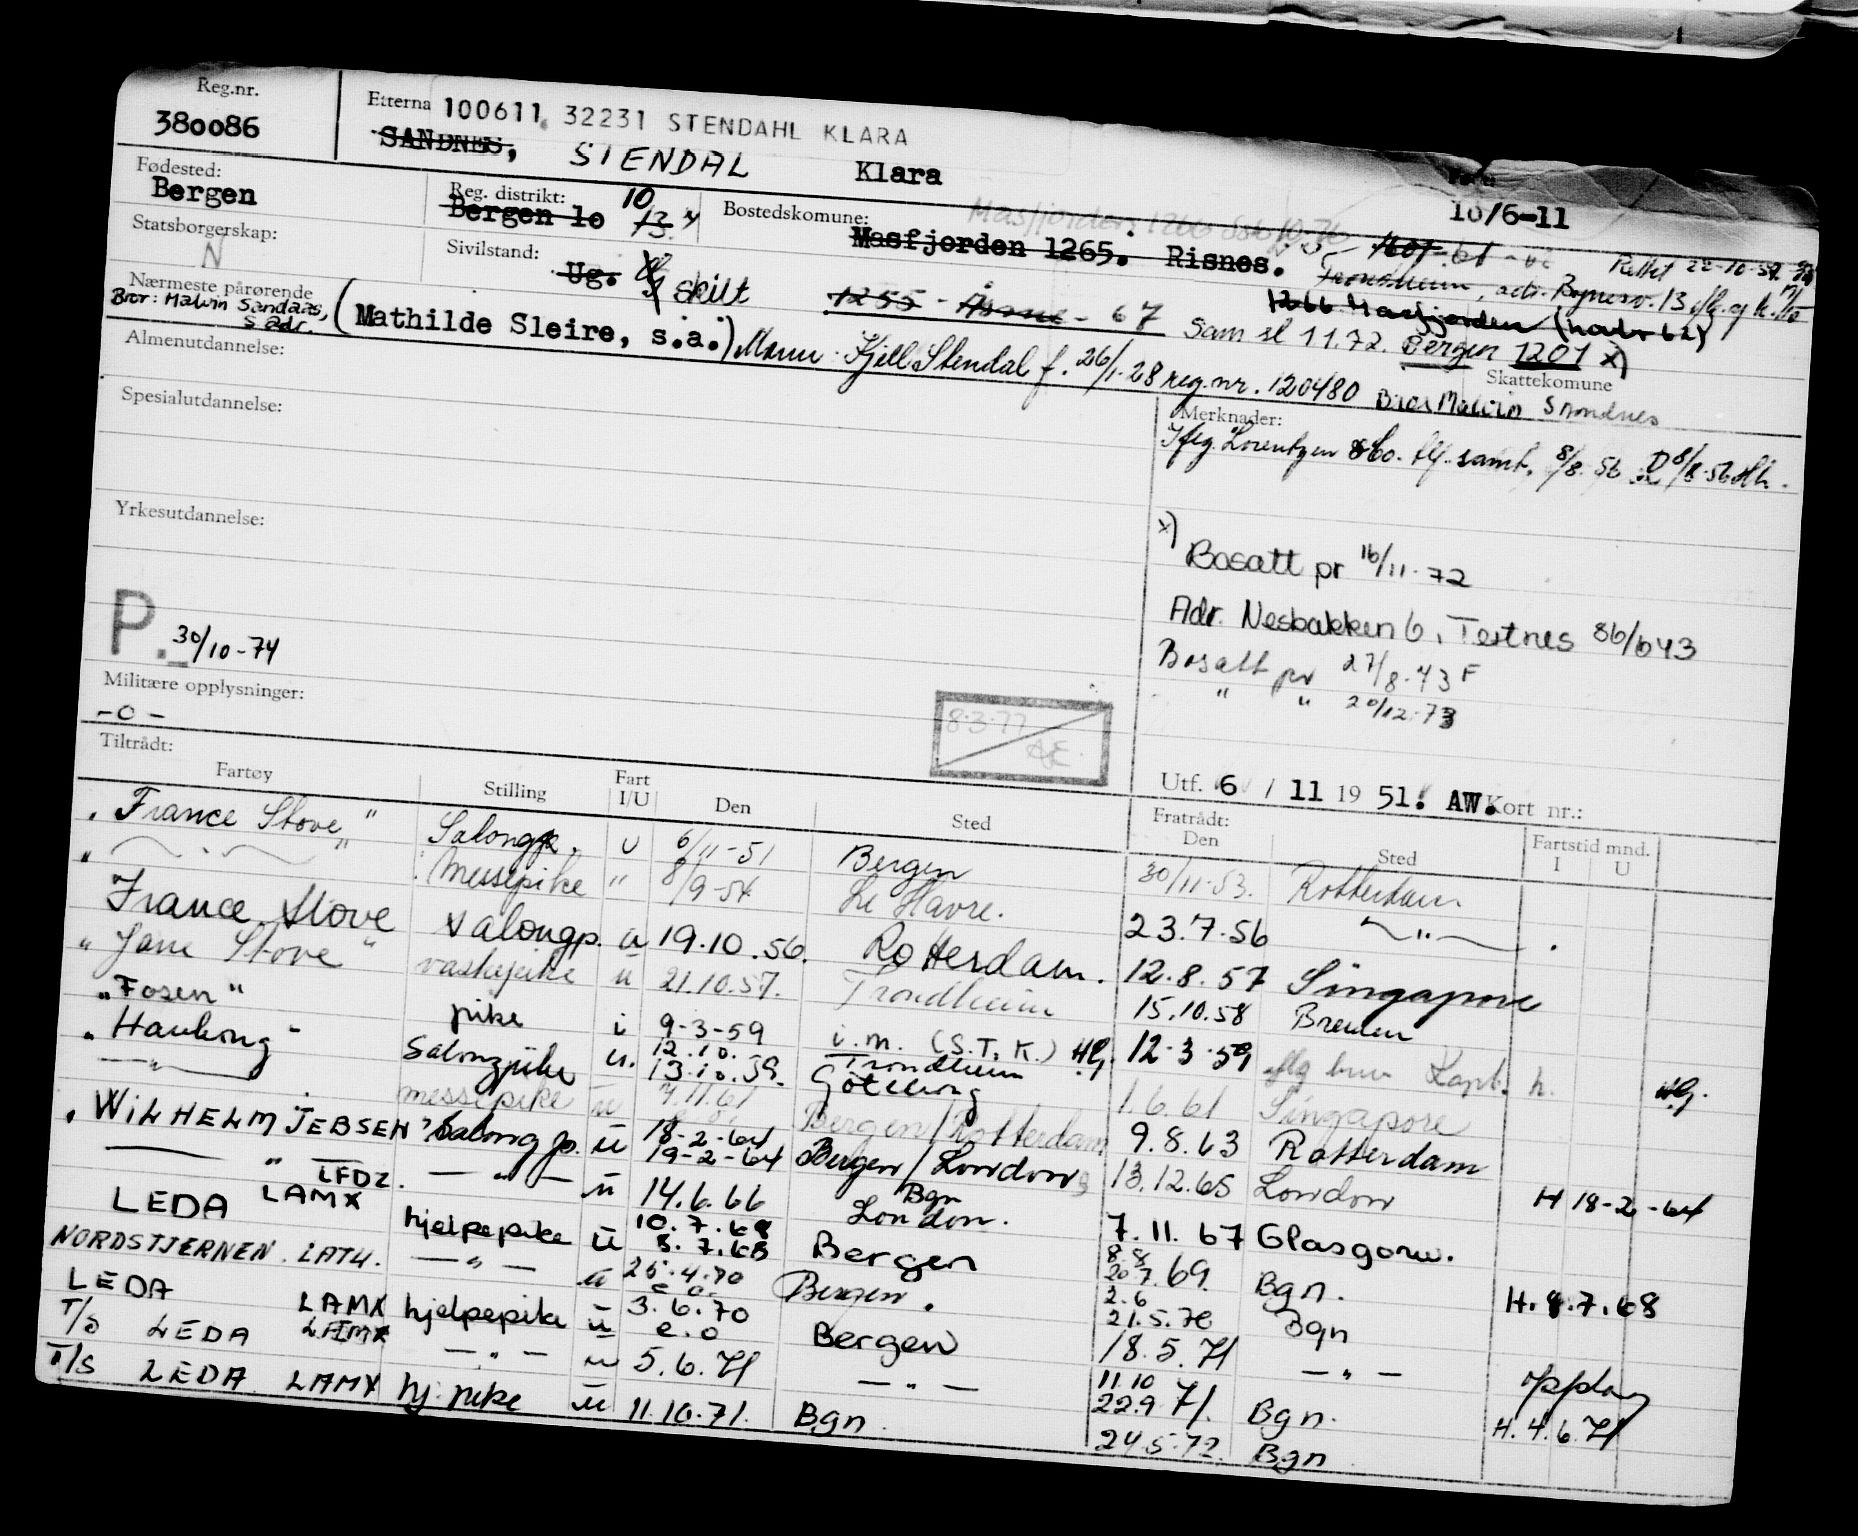 Reg.nr.
380086
Etterna 100611 32231 STENDAHL KLARA
SANDNES, STENDAL Klara
10/6-11
Fødested:
Bergen
Reg. distrikt:
Bergen 10 13. 10
Bostedskomune:
Masfjorden 1265. Risnes.
Rettet 22-10-59
Trondheim, adr. Bynesv. 13
Statsborgerskap:
N
Sivilstand:
Ug. skilt
1255 - - 67
1266 Masfjorden
Sam sl 11.72. Bergen 1201 x)
Skattekomune
Nærmeste pårørende
Bror: Malvin Sandnes,
s adr.
(Mathilde Sleire, s.a.) Mann: Kjell Stendal f. 26/1-28 reg.nr. 120480 Bror Malvin Sandnes
Almenutdannelse:
Spesialutdannelse:
Yrkesutdannelse:
P. 30/10-74
Militære opplysninger:
-0-
8.3.77
Merknader:
Ifflg. Lorentzen &Co. tlf. samt. 8/8. 56 8/8-56
x)
Bosatt pr 16/11-72
Adr. Nesbakken 6, Tertnes 86/643
Bosatt pr 27/8-73 F
" " 20/12-73
Utf. 6 / 11 19 51. AW. Kort nr.:
Tiltrådt:
Fartøy Stilling Fart I/U Den Sted
Fratrådt: Den Sted Fartstid mnd. I U
"France Stove" Salongp. u 6/11-51 Bergen 30/11-53. Rotterdam
" " Messepike " 8/9-54 Le Havre. 23.7.56 "
France Stove salongp. u 19.10.56. Rotterdam. 12.8.57 Singapore
"Jane Stove" vaskepike u 21.10.57. Trondheim 15.10.58 Bremen
"Fosen" pike i 9-3-59 i.m. (S.T.K.) 12-3-59 h.
"Haukong" Salongpike u. 12.10. 13.10.59. Trondheim Göteborg 1.6.61 Singapore
" messepike u 7.11.61 Bergen/Rotterdam 9.8.63 Rotterdam
"WILHELM JEBSEN" Salong p. u 18-2-64 19-2-64 Bergen/London 13.12.65 London H 18-2-64
" LFDZ. " u 14.6.66 Bgn London. 7.11.67 Glasgow.
LEDA LAMX hjelpepike u 10.7.68 8.7.68 Bergen 8.8 20.7.69. Bgn. H. 8.7.68
NORDSTJERNEN LATU. " u 25.4.70 Bergen. 2.6 21.5.70 Bgn
LEDA LAMX hjelpepike u 3.6.70 e.o Bergen 18.5.71 "
T/S LEDA LAMX " u 5.6.71 " 11.10 22.9 71. Bgn. oppdag H. 4.6.71
T/S LEDA LAMX hj. pike u 11.10.71. Bgn. 24.5.72. Bgn